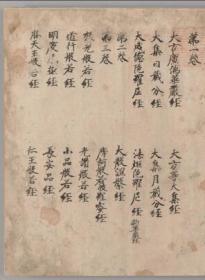 第一卷
大方廣佛華嚴經　大方等大集經
大集日藏分經　大集月藏分經
大威德陀羅尼經　法炬陀羅尼經
第二卷　大般涅槃經
第三卷　摩訶般若波羅蜜經
放光般若經　光讚般若經
道行般若經　小品般若經
明度經　長安品經
勝天王般若經　仁王般若經